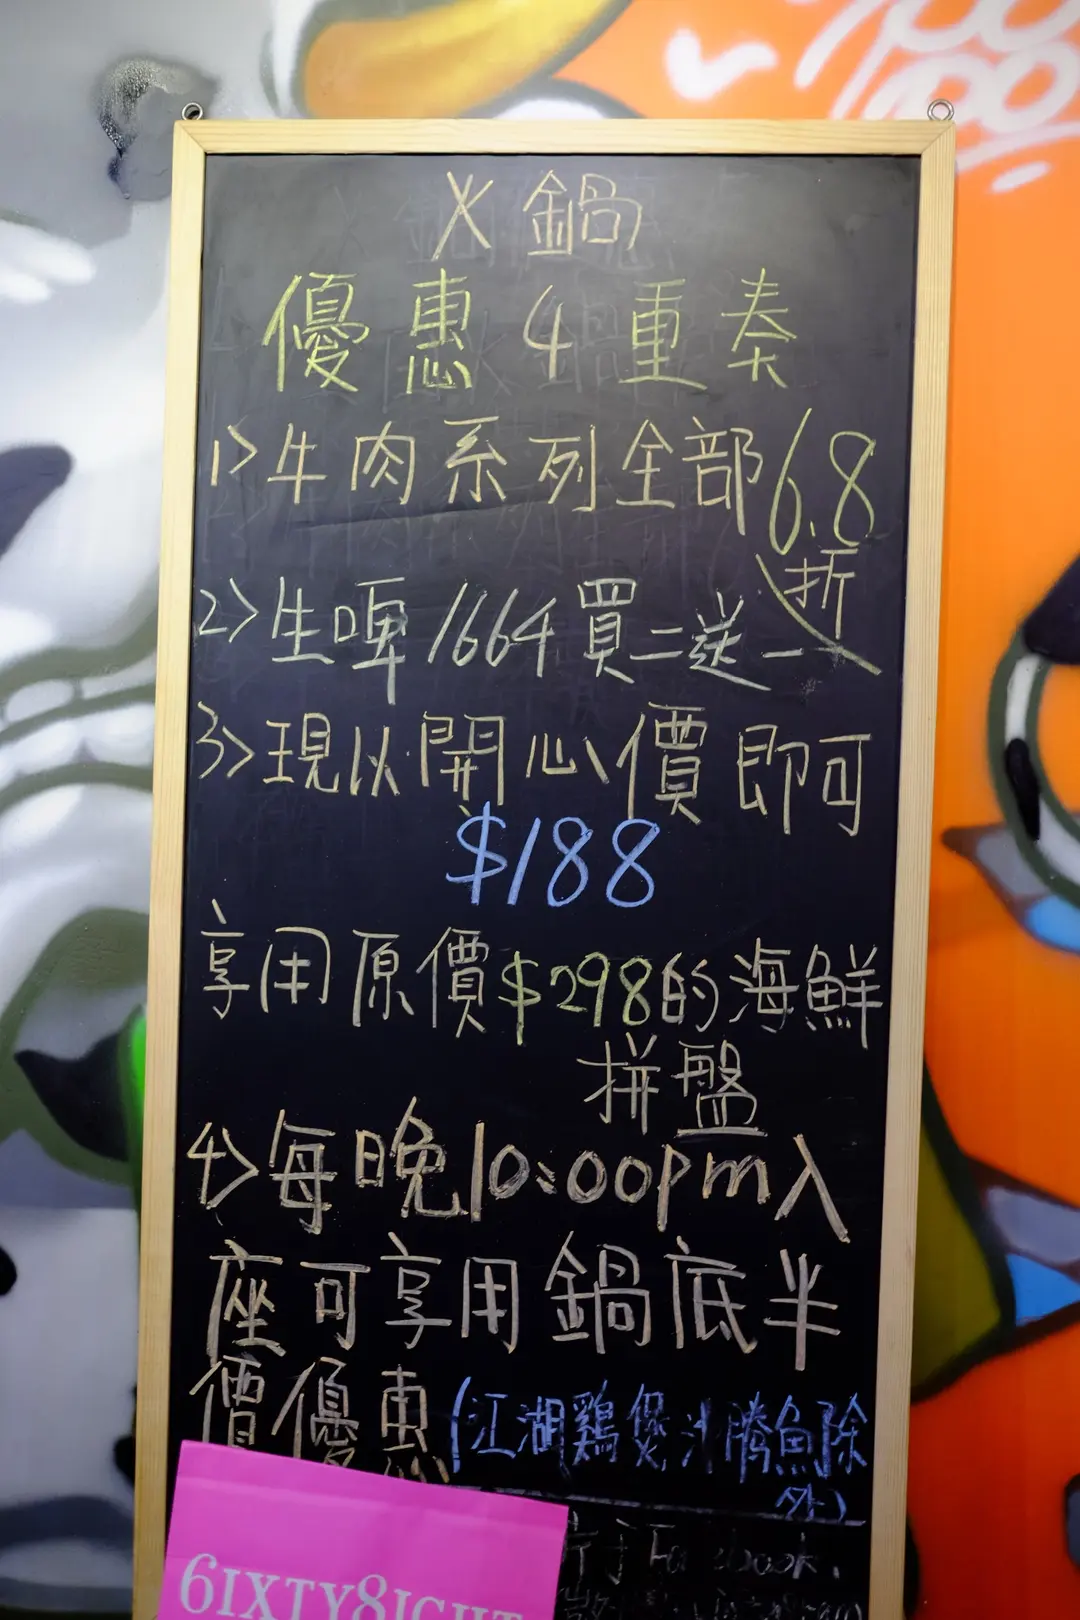 火鍋
優惠4重奏
1>牛肉系列全部6.8
折
2>生啤/1664買二送一
3>現以開心價即可
$188
享用原價$298的海鮮
拼盤
4>每晚10:00pm入
座可享用鍋底半
價優惠(江湖鷄煲 腾魚除
外)
Facebook,
6IXTY8IGHT